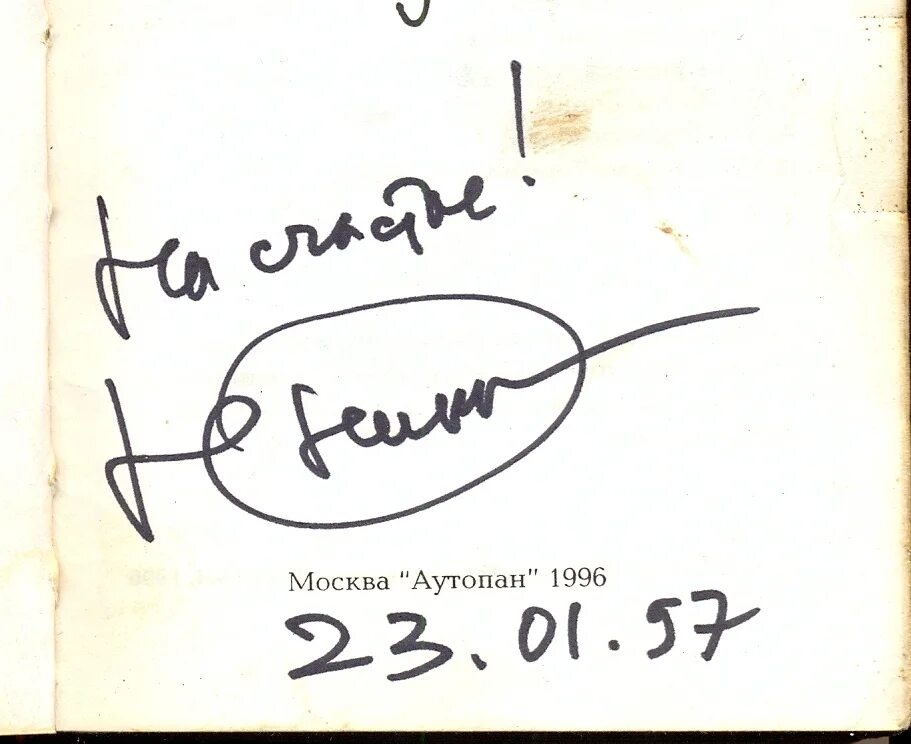 На счастье!
Москва "Аутопан" 1996
23.01.97